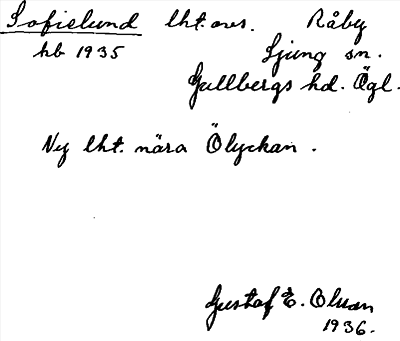 Sofielund lht. avs. Råby
hb 1935 Ljung sn.
Gullbergs hd. Ögl.
Ny lht. nära Ölyckan.
Gustaf E. Olsson
1936.